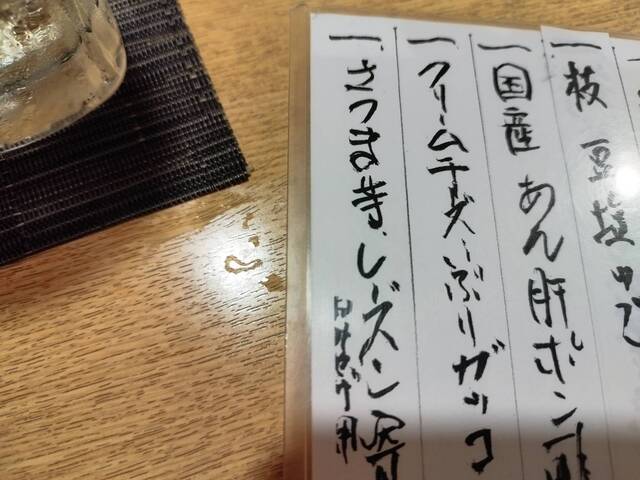 一、枝豆塩ゆで
一、国産あん肝ポン酢
一、クリームチーズいぶりガッコ
一、さつま芋、レーズン